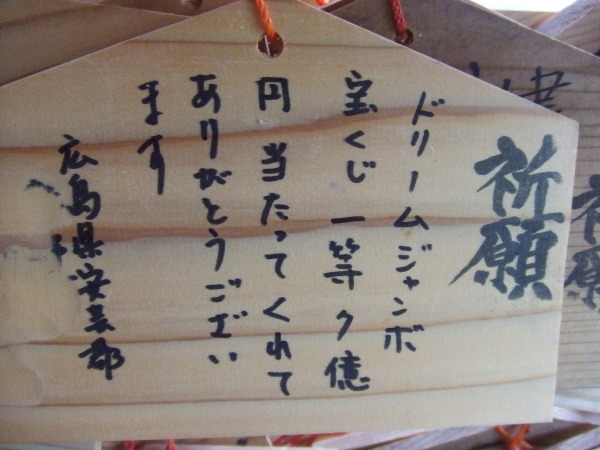 祈願
ドリームジャンボ
宝くじ 一等 2億
円 当たってくれて
ありがとうござい
ます
広島県安芸郡